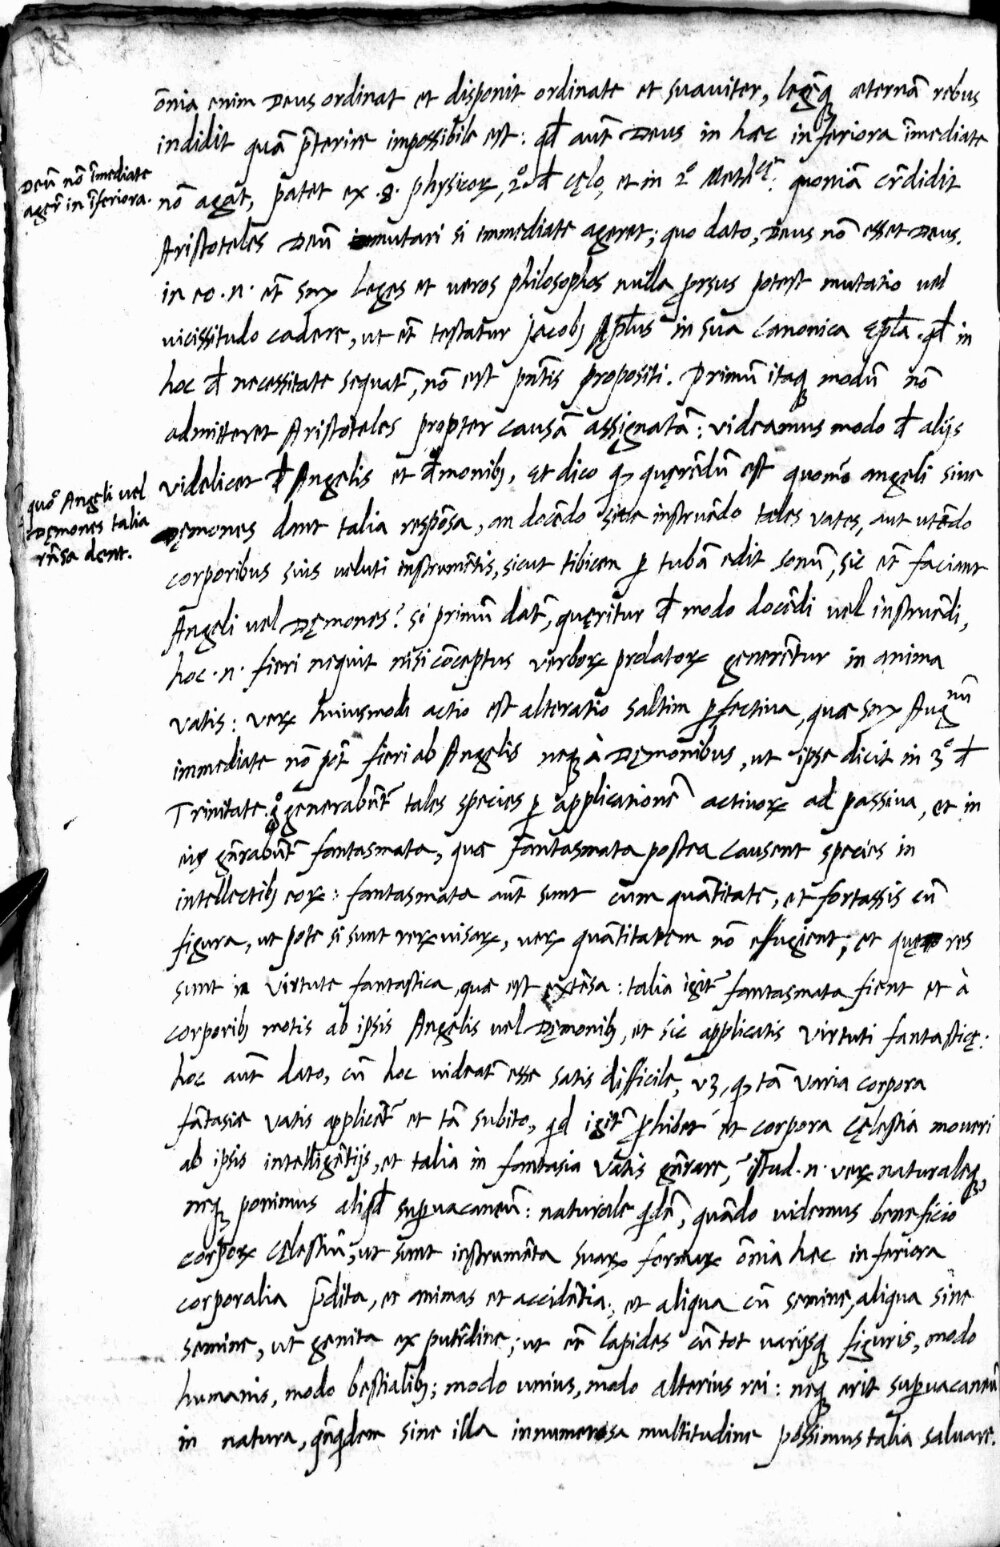 ōnia enim Deus ordinat et disponit ordinate et suaviter, legēq; æternā rebus
indidit quā p̄terire impossibile est: qđ aūt Deus in hæc inferiora īmediate
Deū nō īmediate
agere in īferiora.
nō agat, patet ex .8. physicoꝝ, 2º đ cęlo, et in 2º Meth^cę: quoniā cr̄didit
Aristoteles Deū mutari si immediate ageret; quo dato, Deus nō esset Deus.
in eo .n. ēt secū Leges et veros philosophos nulla prorsus potest mutatio vel
vicissitudo cadere, ut ēt testatur Jacobꝰ Ap̄lus in sua Canonica Ep̄la. qđ in
hoc đ necessitate sequat̄, nō est pn̄tis propositi. Primū itaq; modū nō
admitteret Aristoteles propter causā assignatā: videamus modo đ alijs
videlicet đ Angelis et đmonibꝰ, Et dico q̨ quęrēdū est quomō angeli sive
quō Angeli vel
Dęmones talia
rn̄sa dent.
Dęmones dant talia respōsa, an docēdo sive instruēdo tales vates, aut utēdo
corporibus suis veluti instrumētis, sicut tibicen p tubā edit sonū, sic ēt faciant
Angeli vel Dęmones? si primū dat̄, quęritur đ modo docēdi vel instruēdi,
hoc .n. fieri nequit nisi cōceptus verboꝝ prolatoꝝ generētur in anima
vatis: veꝝ huiusmodi actio est alteratio saltim p̱fectiva, quæ secū Aug^nū
immediate nō pōt fieri ab Angelis neq; à Dęmonibus, ut ipse dicit in 3º đ
Trinitate. gº generabūt̄ tales species p applicationē activoꝝ ad passiva, et in
eis gn̄rabūt̄ fantasmata, quæ fantasmata postea causent species in
intellectibꝰ eoꝝ: fantasmata aūt sunt cum quātitate, et fortassis cū
figura, ut pote si sunt reꝝ visaꝝ, veꝝ quātitatem nō effugient, et quę res
sunt in virtute fantastica, quæ est extēsa: talia igit̄ fantasmata fient et à
corporibꝰ motis ab ipsis Angelis vel Dęmonibꝰ, et sic applicatis virtuti fantasticę:
hoc aūt dato, cū hoc videat̄ esse satis difficile, vʒ, q̨ tā varia corpora
fātasiæ vatis applicēt̄ et tā subito, qd igit̄ p̱hibet et corpora cęlestia moveri
ab ipsis intelligētijs, et talia in fantasia vatis gn̄rare, istud .n. veꝝ naturaleq;,
neq; ponimus aliqđ sup̱vacaneū: naturale qdē, quādo videmus beneficio
corpoꝝ cęlestiū, ut sunt instrumēta suaꝝ formaꝝ ōnia hæc inferiora
corporalia p̄dita, et animas et accidētia; et aliqua cū semine, aliqua sine
semine, ut genita ex putr̄dine; ut ēt lapides cū tot varijsq; figuris, modo
humanis, modo bestialibꝰ; modo unius, modo alterius rei: neq; erit sup̱vacaneū
in natura, qn̄qdem sine illa innumerosa multitudine possimus talia salvare.